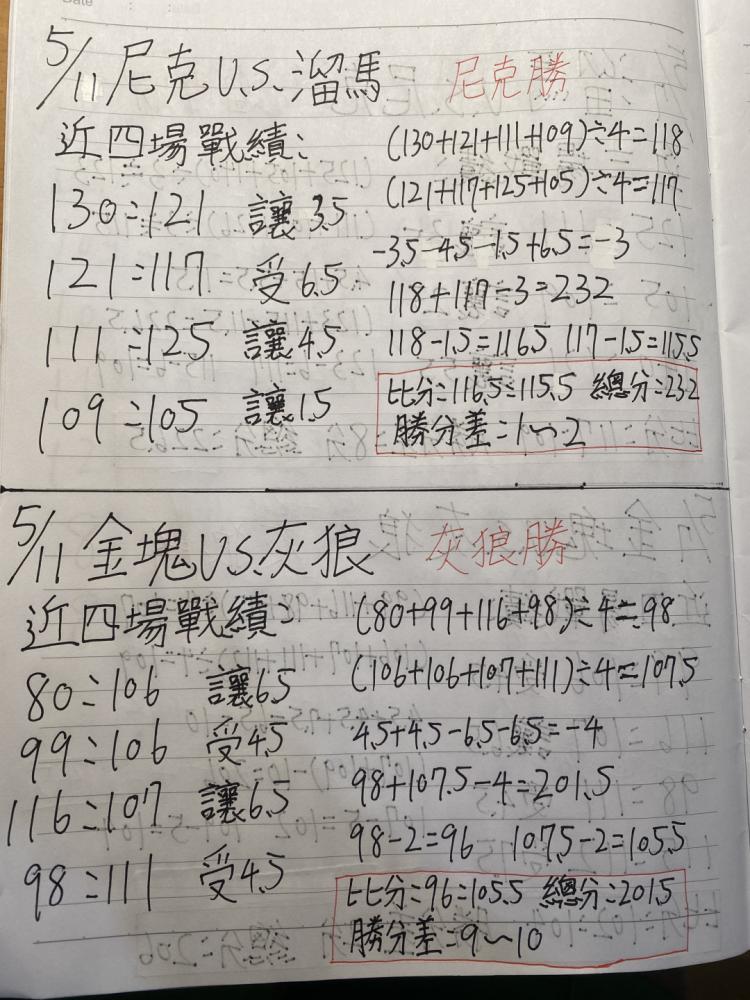 Date
5/11 尼克 V.S. 溜馬 尼克勝
近四場戰績:
130:121 讓3.5
121:117 受6.5
111:125 讓4.5
109:105 讓1.5
(130+121+111+109)÷4=118
(121+117+125+105)÷4=117
-3.5-4.5-1.5+6.5=-3
118+117-3=232
118-1.5=116.5 117-1.5=115.5
比分:116.5:115.5 總分:232
勝分差:1~2
5/11 金塊 V.S. 灰狼 灰狼勝
近四場戰績:
80:106 讓6.5
99:106 受4.5
116:107 讓6.5
98:111 受4.5
(80+99+116+98)÷4≒98
(106+106+107+111)÷4=107.5
4.5+4.5-6.5-6.5=-4
98+107.5-4=201.5
98-2=96 107.5-2=105.5
比分:96:105.5 總分:201.5
勝分差:9~10